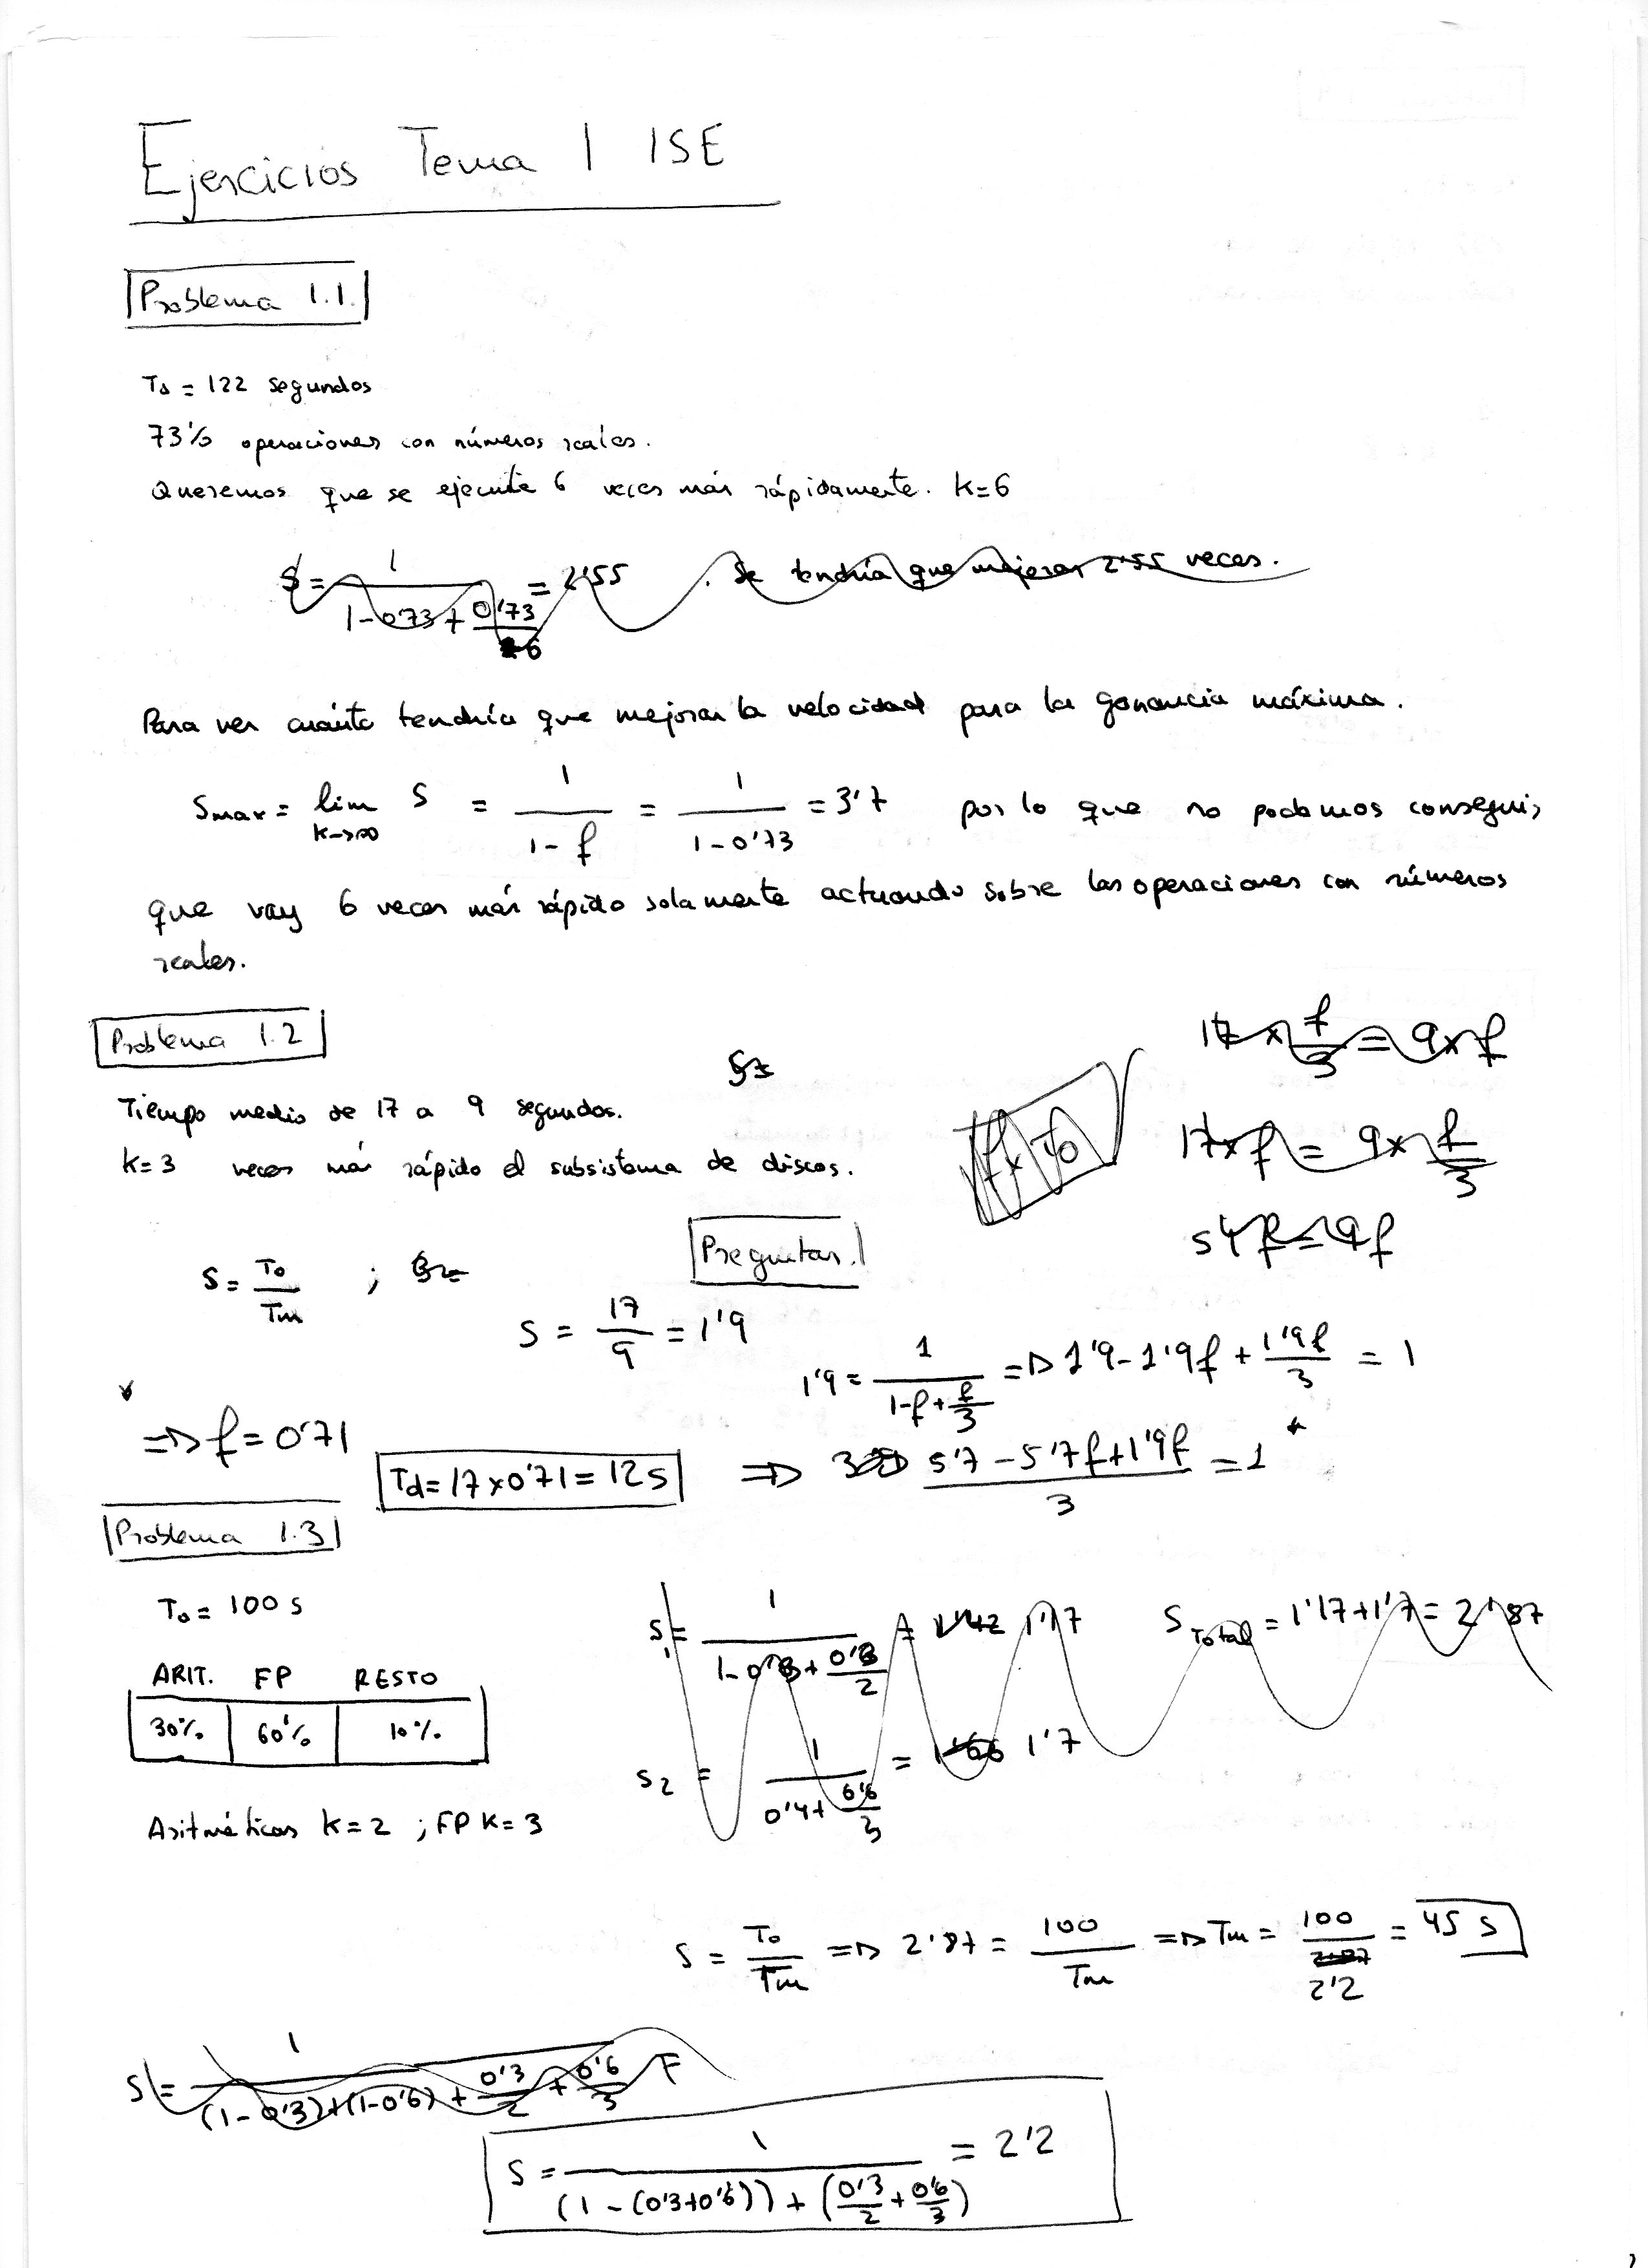 Ejercicios Tema 1 ISE
Problema 1.1.
To = 122 segundos
73% operaciones con números reales.
Queremos que se ejecute 6 veces más rápidamente. k=6
S = 1 / (1-0'73 + 0'73/6) = 2'55 . Se tendría que mejorar 2'55 veces.
Para ver cuánto tendría que mejorar la velocidad para la ganancia máxima.
Smax = lim k->∞ S = 1 / (1-f) = 1 / (1-0'73) = 3'7 por lo que no podemos conseguir
que vay 6 veces más rápido solamente actuando sobre las operaciones con números
reales.
Problema 1.2
17 x f/3 = 9xf
Tiempo medio de 17 a 9 segundos.
f x To
17xf = 9x f/3
k=3 veces más rápido el subsistema de discos.
54f = 9f
Preguntar.
S = To/Tm ;
S = 17/9 = 1'9
1'9 = 1 / (1-f+f/3) => 1'9-1'9f + 1'9f/3 = 1
=> (5'7 - 5'7f+1'9f)/3 = 1 *
* => f = 0'71
Td = 17x0'71 = 12s
Problema 1.3
To = 100 s
ARIT. FP RESTO
30% 60% 10%
Aritméticas k=2 ; FP k=3
S1 = 1 / (1-0'3+ 0'3/2) = 1'17
STotal = 1'17+1'7 = 2'87
S2 = 1 / (0'4+ 0'6/3) = 1'66 1'7
S = To/Tm => 2'87 = 100/Tm => Tm = 100/2'2 = 45 s
S = 1 / ((1-0'3)+(1-0'6) + 0'3/2 + 0'6/3) =
S = 1 / ((1-(0'3+0'6)) + (0'3/2 + 0'6/3)) = 2'2